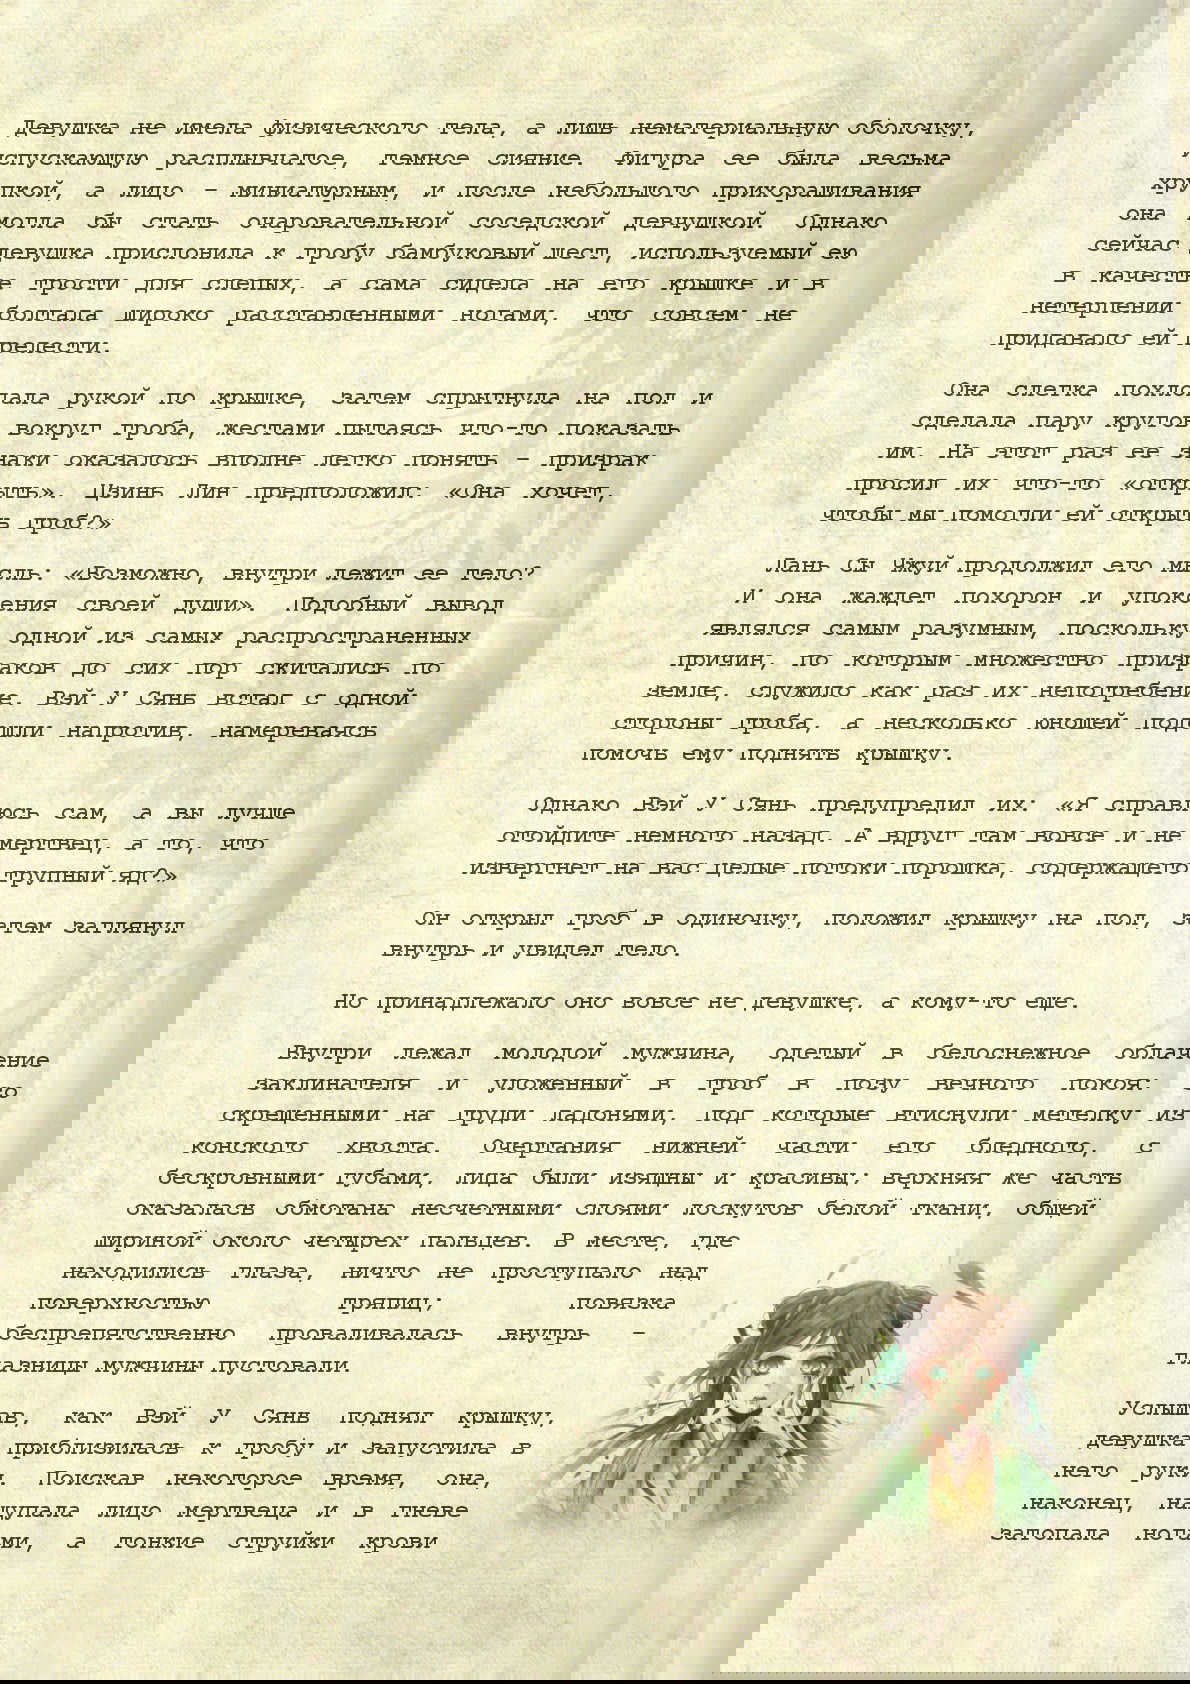 Девушка не имела физического тела, а лишь нематериальную оболочку,
испускающую расплывчатое, темное сияние. Фигура ее была весьма
хрупкой, а лицо – миниатюрным, и после небольшого прихорашивания
она могла бы стать очаровательной соседской девчушкой. Однако
сейчас девушка прислонила к гробу бамбуковый шест, используемый ею
в качестве трости для слепых, а сама сидела на его крышке и в
нетерпении болтала широко расставленными ногами, что совсем не
придавало ей прелести.
Она слегка похлопала рукой по крышке, затем спрыгнула на пол и
сделала пару кругов вокруг гроба, жестами пытаясь что-то показать
им. На этот раз ее знаки оказалось вполне легко понять – призрак
просил их что-то «открыть». Цзинь Лин предположил: «Она хочет,
чтобы мы помогли ей открыть гроб?»
Лань Сы Чжуй продолжил его мысль: «Возможно, внутри лежит ее тело?
И она жаждет похорон и упокоения своей души». Подобный вывод
являлся самым разумным, поскольку одной из самых распространенных
причин, по которым множество призраков до сих пор скитались по
земле, служило как раз их непогребение. Вэй У Сянь встал с одной
стороны гроба, а несколько юношей подошли напротив, намереваясь
помочь ему поднять крышку.
Однако Вэй У Сянь предупредил их: «Я справлюсь сам, а вы лучше
отойдите немного назад. А вдруг там вовсе и не мертвец, а то, что
извергнет на вас целые потоки порошка, содержащего трупный яд?»
Он открыл гроб в одиночку, положил крышку на пол, затем заглянул
внутрь и увидел тело.
Но принадлежало оно вовсе не девушке, а кому-то еще.
Внутри лежал молодой мужчина, одетый в белоснежное облачение
заклинателя и уложенный в гроб в позу вечного покоя: со
скрещенными на груди ладонями, под которые втиснули метелку из
конского хвоста. Очертания нижней части его бледного, с
бескровными губами, лица были изящны и красивы; верхняя же часть
оказалась обмотана несчетными слоями лоскутов белой ткани, общей
шириной около четырех пальцев. В месте, где
находились глаза, ничто не проступало над
поверхностью тряпиц; повязка
беспрепятственно проваливалась внутрь –
глазницы мужчины пустовали.
Услышав, как Вэй У Сянь поднял крышку,
девушка приблизилась к гробу и запустила в
него руки. Поискав некоторое время, она,
наконец, нащупала лицо мертвеца и в гневе
затопала ногами, а тонкие струйки крови